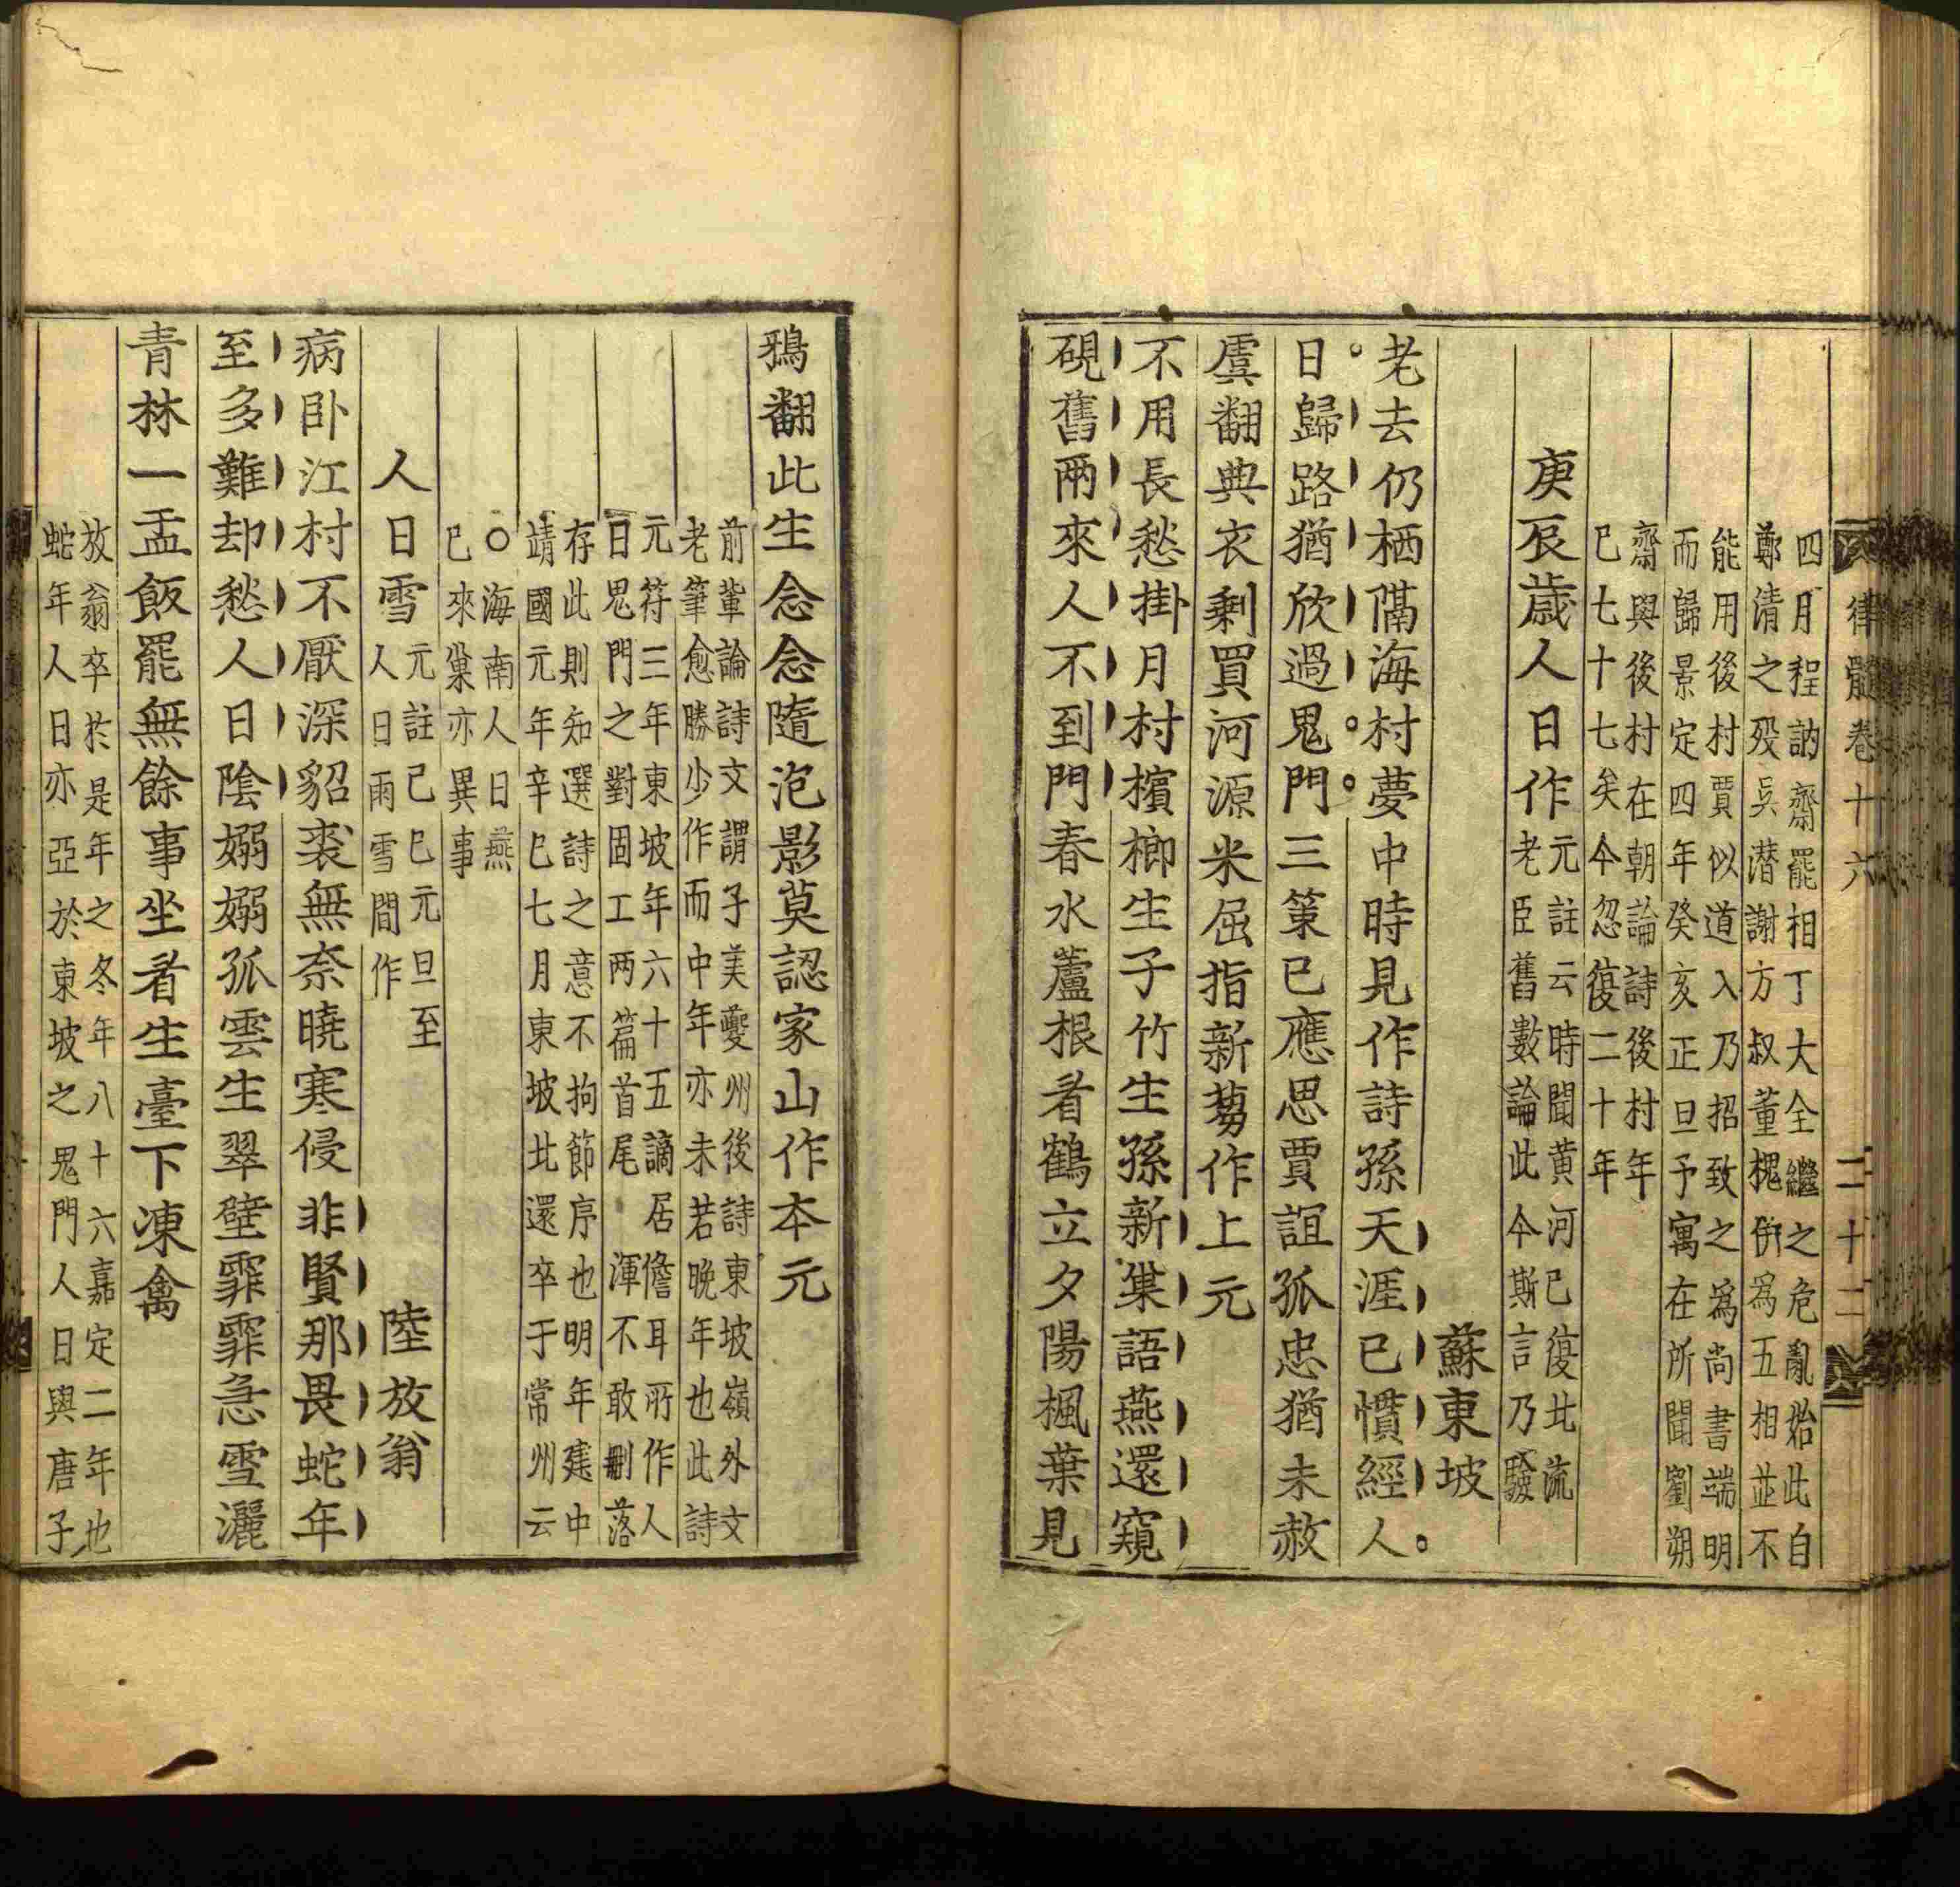 律髓卷十六
二十二
四月程訥齋罷相丁大全繼之危亂始此自
鄭清之殁吳潜謝方叔董槐併爲五相並不
能用後村賈似道入乃招致之爲尚書端明
而歸景定四年癸亥正旦予寓在所聞劉朔
齋與後村在朝論詩後村年
已七十七矣今忽復二十年
庚辰歲人日作元註云時聞黄河已復北流
老臣舊數論此今斯言乃驗
蘇東坡
老去仍栖隔海村夢中時見作詩孫天涯已慣經人
日歸路猶欣過鬼門三策已應思賈誼孤忠猶未赦
虞翻典衣剩買河源米屈指新蒭作上元
不用長愁掛月村檳榔生子竹生孫新巢語燕還窺
硯舊兩來人不到門春水蘆根看鶴立夕陽楓葉見
鴉翻此生念念隨泡影莫認家山作本元
前輩論詩文謂子美夔州後詩東坡嶺外文
老筆愈勝少作而中年亦未若晚年也此詩
元符三年東坡年六十五謫居儋耳所作人
日鬼門之對固工两篇首尾渾不敢刪落
存此則知選詩之意不拘節序也明年建中
靖國元年辛巳七月東坡北還卒于常州云
○海南人日燕
已來巢亦異事
人日雪元註己巳元旦至
人日雨雪間作
陸放翁
病卧江村不厭深貂裘無奈曉寒侵非賢那畏蛇年
至多難却愁人日陰嫋嫋孤雲生翠壁霏霏急雪灑
青林一盂飯罷無餘事坐看生臺下凍禽
放翁卒於是年之冬年八十六嘉定二年也
蛇年人日亦亞於東坡之鬼門人日與唐子